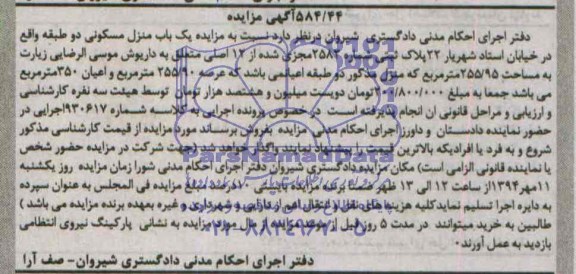 ۵۸۴/۴۴ آگهی مزایده
دفتر اجرای احکام مدنی دادگستری شیروان درنظر دارد نسبت به مزایده یک باب منزل مسکونی دو طبقه واقع
در خیابان استاد شهریار ۲۲پلاک ثبتی مجزی شده از ۱۲ اصلی متعلق به داریوش موسی الرضایی زیارت
به مساحت ۲۵۵/۹۵مترمربع که منزل مذکور دو طبقه اعیانی می باشد که عرصه ۲۵۵/۹۰ مترمربع و اعیان ۳۵۰مترمربع
می باشد جمعا به مبلغ ۲۰۰/۸۰۰/۰۰۰تومان دویست میلیون و هشتصد هزار تومان توسط هیئت سه نفره کارشناسی
و ارزیابی و مراحل قانونی ان انجام پذیرفته است در خصوص پرونده اجرایی به کلاسه شماره ۹۳۰۶۱۷اجرایی در
حضور نماینده دادستان و داورز اجرای احکام مدنی مزایده بفروش برساند مورد مزایده از قیمت کارشناسی مذکور
شروع و به فرد یا افرادیکه بالاترین قیمت را پیشنهاد نمایند واگذار خواهد شد (جهت شرکت در مزایده حضور شخص
یا نماینده قانونی الزامی است) مکان مزایده دادگستری شیروان دفتر اجرای احکام مدنی شورا زمان مزایده روز یکشنبه
۱۱مهر۱۳۹۴از ساعت ۱۲ الی ۱۳ ظهر ضمنا برنده مزایده بایستی ۱۰درصد مبلغ مزایده فی المجلس به عنوان سپرده
به دایره اجرا تسلیم نمایدکلیه هزینه های نقل و انتقال اعم از دارایی و شهرداری و غیره بعهده برنده مزایده می باشد )
طالبین به خرید میتوانند در مدت ۵ روز قبل از موعد مزایده از مال مورد مزایده به نشانی پارکینگ نیروی انتظامی
بازدید به عمل آورند۰
دفتر اجرای احکام مدنی دادگستری شیروان- صف آرا
ParsNamadData